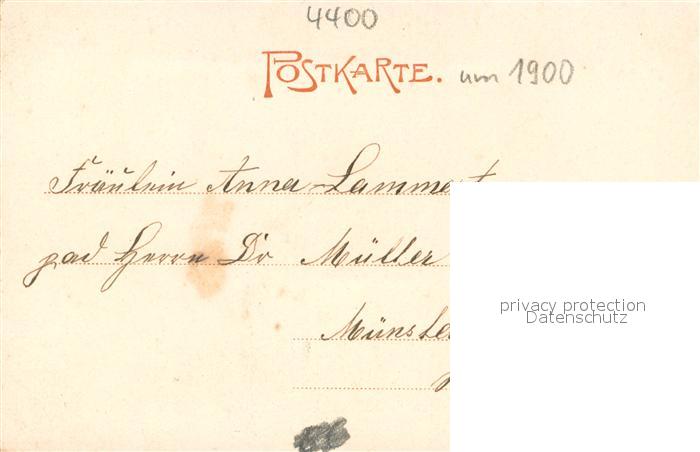 4400
POSTKARTE. um 1900
Fräulein Anna Lammert
pad Herrn Dr Müller
Münste
privacy protection
Datenschutz